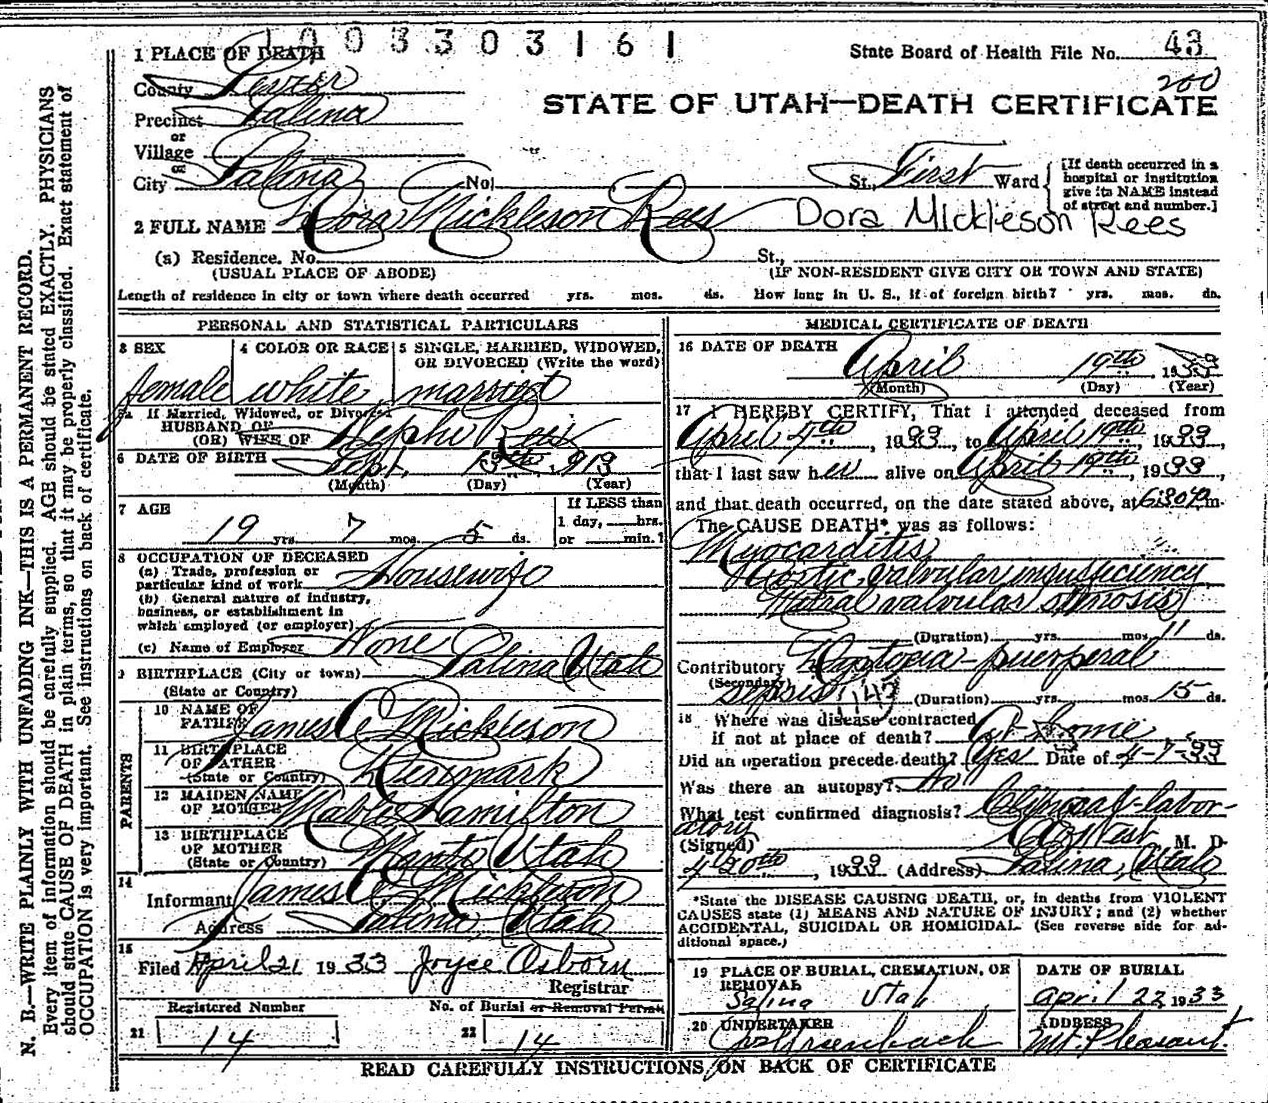 1003303161
1 PLACE OF DEATH
State Board of Health File No. 43
County Sevier
200
Precinct Salina
STATE OF UTAH—DEATH CERTIFICATE
or
Village
or
City Salina No. St., First Ward
[If death occurred in a
hospital or institution
give its NAME instead
of street and number.]
2 FULL NAME Dora Mickleson Rees Dora Mickleson Rees
(a) Residence. No. St.,
(USUAL PLACE OF ABODE) (IF NON-RESIDENT GIVE CITY OR TOWN AND STATE)
Length of residence in city or town where death occurred yrs. mos. ds. How long in U. S., if of foreign birth? yrs. mos. ds.
PERSONAL AND STATISTICAL PARTICULARS
3 SEX 4 COLOR OR RACE 5 SINGLE, MARRIED, WIDOWED,
OR DIVORCED (Write the word)
female white married
5a If Married, Widowed, or Divorced
HUSBAND OF
(OR) WIFE OF Nephi Rees
6 DATE OF BIRTH Sept. 13th, 1913
(Month) (Day) (Year)
7 AGE If LESS than
19 yrs. 7 mos. 5 ds. 1 day, hrs.
or min.?
8 OCCUPATION OF DECEASED
(a) Trade, profession or
particular kind of work Housewife
(b) General nature of industry,
business, or establishment in
which employed (or employer)
(c) Name of Employer None
9 BIRTHPLACE (City or town) Salina Utah
(State or Country)
PARENTS
10 NAME OF
FATHER James C Mickleson
11 BIRTHPLACE
OF FATHER
(State or Country) Denmark
12 MAIDEN NAME
OF MOTHER Mable Hamilton
13 BIRTHPLACE
OF MOTHER
(State or Country) Manti Utah
14
Informant James C Mickleson
Address Salina Utah
15
Filed April 21 1933 Joyce Osborn
Registrar
Registered Number No. of Burial or Removal Permit
21 14 22 14
MEDICAL CERTIFICATE OF DEATH
16 DATE OF DEATH
April 19th 1933
(Month) (Day) (Year)
17 I HEREBY CERTIFY, That I attended deceased from
April 4th, 1933, to April 19th, 1933,
that I last saw her alive on April 19th, 1933,
and that death occurred, on the date stated above, at 6:30 m.
The CAUSE DEATH* was as follows:
Myocarditis
Aortic valvular insufficiency
Mitral valvular stenosis
(Duration) yrs. mos. 11 ds.
Contributory puerperal
(Secondary)
sepsis (Duration) yrs. mos. 15 ds.
18 Where was disease contracted
if not at place of death? At Home
Did an operation precede death? Yes Date of 4-7-33
Was there an autopsy? No
What test confirmed diagnosis? Clinical-labor-
atory
(Signed) West M. D.
4-20th, 1933 (Address) Salina, Utah
*State the DISEASE CAUSING DEATH, or, in deaths from VIOLENT
CAUSES state (1) MEANS AND NATURE OF INJURY; and (2) whether
ACCIDENTAL, SUICIDAL OR HOMICIDAL. (See reverse side for ad-
ditional space.)
19 PLACE OF BURIAL, CREMATION, OR
REMOVAL
Salina Utah
DATE OF BURIAL
April 22 1933
20 UNDERTAKER
Greenback
ADDRESS
Mt. Pleasant
READ CAREFULLY INSTRUCTIONS ON BACK OF CERTIFICATE
N. B.—WRITE PLAINLY WITH UNFADING INK—THIS IS A PERMANENT RECORD.
Every item of information should be carefully supplied. AGE should be stated EXACTLY. PHYSICIANS
should state CAUSE OF DEATH in plain terms, so that it may be properly classified. Exact statement of
OCCUPATION is very important. See instructions on back of certificate.